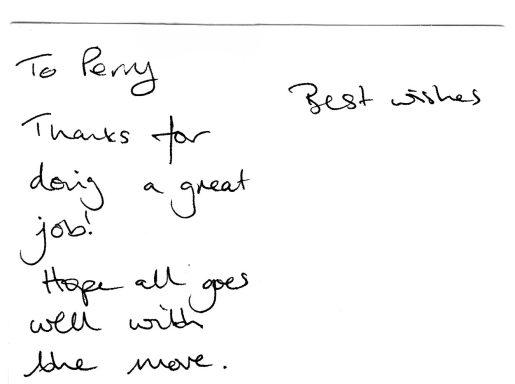 To Perry
Thanks for
doing a great
job!
Hope all goes
well with
the move.
Best wishes